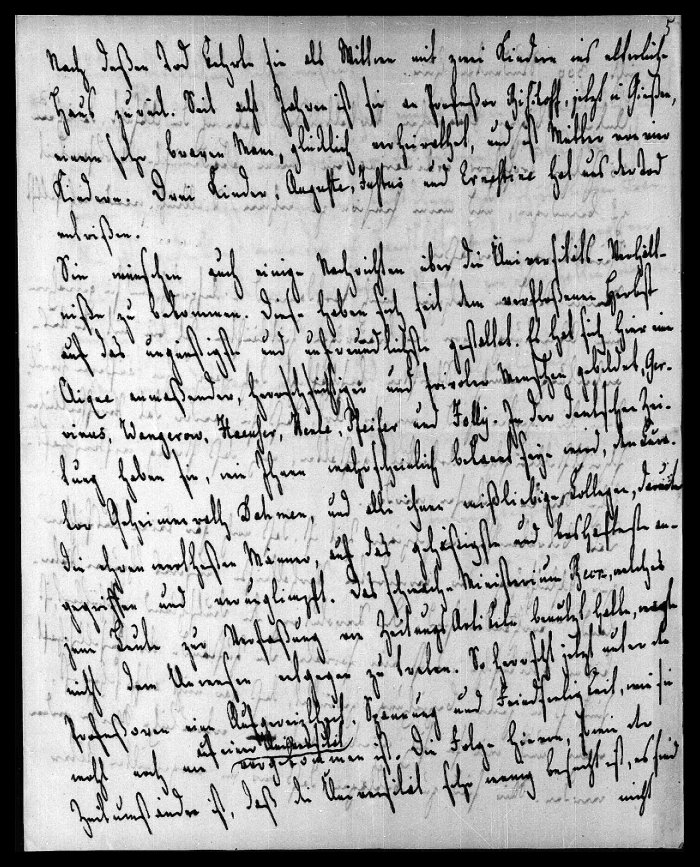 5
Nach deßen Tod kehrte sie als Wittwe mit zwei Kindern ins elterliche
Haus zurück. Seit acht Jahren ist sie an Profeßor Bischoff, jetzt in Gießen,
einem sehr braven Mann, glücklich verheirathet, und ist Mutter von vier
Kindern. Drei Kinder, Auguste, und hat uns der Tod
entrißen.
Sie wünschen auch einige Nachrichten über die Universitäts-Verhält-
niße zu bekommen. Diese haben sich seit dem verfloßenen Herbst
auf das ungünstigste und unfreundlichste gestaltet. Es hat sich hier eine
Clique anmaßender, herrschsüchtiger und frivoler Menschen gebildet, Ger-
vinus, Vangerow, Haeußer, Henle, Pfeifer und Jolly. In der deutschen Zei-
tung haben sie, wie Ihnen wahrscheinlich bekannt seyn wird, den Cura-
tor Geheimerath Dahmen, und alle ihnen mißliebige Collegen, darunter
die ehrenwerthesten Männer, auf das gehäßigste und boshafteste an-
gegriffen und verunglimpft. Das schwache Ministerium Beck, welches
jene Leute zur Verfaßung von Zeitungs Artikeln benutzt hatte, wagte
nicht dem Unwesen entgegen zu treten. So herrscht jetzt unter den
Profeßoren eine Aufgereiztheit, Spannung und Feindseeligkeit, wie sie
wohl noch nie auf einer Universität vorgekommen ist. Die Folge hievon, sowie der
Zeitumstände ist, daß die Universität sehr wenig besucht ist, es sind
nicht